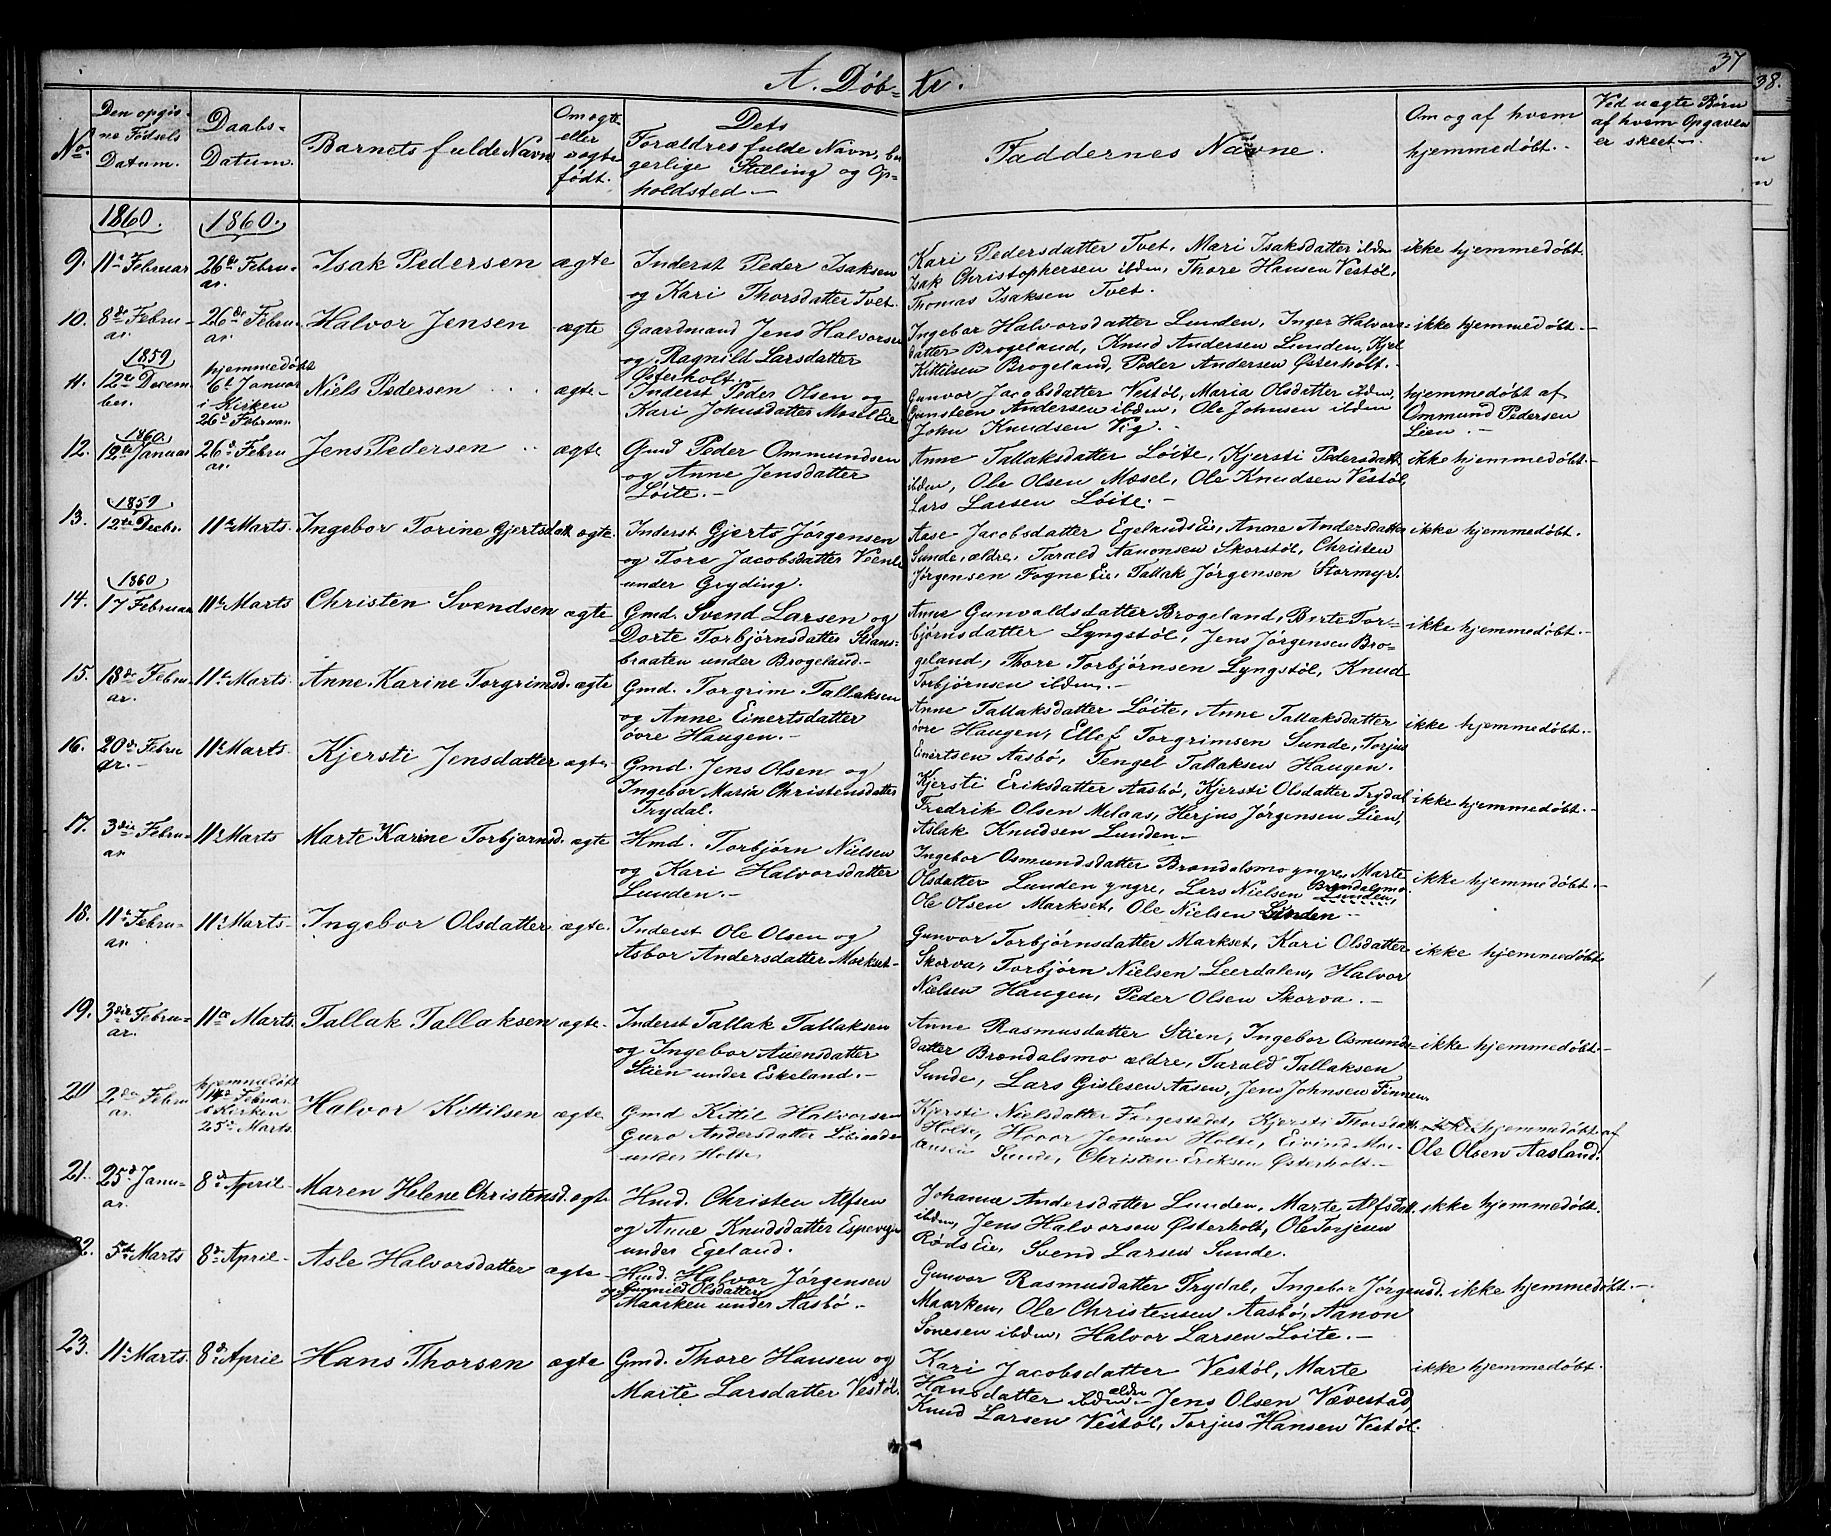 37
38.
A. Døb= te.
No.
Den opgiv-
ne Fødsels
Datum.
Daabs-
Datum.
Barnets fulde Navn
Om ægte
eller
uægte
født.
Dets
Forældres fulde Navn, bor
gerlige Stilling og Op=
holdsted.-
Faddernes Navne.
Om og af hvem
hjemmedøbt.-
Ved uægte Børn
af hvem Opgaven
er skeet-.
1860. 1860.
9. 11te Februar 26de Febru-
ar. Isak Pedersen ægte Inderst Peder Isaksen
og Kari Thorsdatter Tvet.
Kari Pedersdatter Tvet, Mari Isaksdatter ibdm
Isak Christophersen ibdm, Thore Hansen Vestøl,
Thomas Isaksen Tvet.
ikke hjemmedøbt.
10. 8de Febru-
ar. 26de Febru-
ar. Halvor Jensen ægte Gaardmand Jens Halvorsen
og Ragnild Larsdatter
Østerholt.
Ingebor Halvorsdatter Lunden, Inger Halvors=
datter Brogeland, Knud Andersen Lunden, Kjel
Kittilsen Brogeland, Peder Andersen Østerholt.-
ikke hjemmedøbt.-
1859
11. 12te Decem-
ber. hjemmedøbt
6te Januar
i Kirken
26de Februar. Niels Pedersen ægte- Inderst Peder Olsen og
Kari Johnsdatter Mosel Eie
Gunvor Jacobsdatter Vestøl, Maria Olsdatter ibdm,
Gunsteen Andersen ibdm, Ole Johnsen ibdm
John Knudsen Vig.-
hjemmedøbt af
Ommund Pedersen
Lien.-
1860.
12. 12te Januar 26de Febru
ar. Jens Pedersen ægte Gmd Peder Ommundsen
og Anne Jensdatter
Løite.-
Anne Tallaksdatter Løite, Kjersti Pedersdatt.
ibdm, Ole Olsen Mosel, Ole Knudsen Vestøl,
Lars Larsen Løite.-
ikke hjemmedøbt.-
1859
13. 12te Decbr. 11te Marts. Ingebor Torine Gjertsdatt. ægte. Inderst Gjerts Jørgensen
og Tore Jacobsdatter Veenli
under Gryding.
Aase Jacobsdatter Egelands Eie, Anne Andersdatter
Sunde, ældre, Tarald Aanonsen Skorstøl, Christen
Jørgensen Fogne Eie, Tallak Jørgensen Stormyr.
ikke hjemmedøbt.
1860
14. 17 Februar 11te Marts Christen Svendsen ægte Gmd. Svend Larsen og
Dorte Torbjørnsdatter Stians-
braaten under Brogeland.-
Anne Gunvaldsdatter Brogeland, Berte Tor-
bjørnsdatter Lyngstøl, Jens Jørgensen Bro-
geland, Thore Torbjørnsen Lyngstøl, Knud
Torbjørnsen ibdm.-
ikke hjemmedøbt.-
15. 18de Febru-
ar. 11te Marts. Anne Karine Torgrimsd. ægte Gmd. Torgrim Tallaksen
og Anne Einertsdatter
øvre Haugen.-
Anne Tallaksdatter Løite, Anne Tallaksdatter
øvre Haugen, Ellef Torgrimsen Sunde, Torjus
Einertsen Aasbø, Tengel Tallaksen Haugen.
ikke hjemmedøbt.-
16. 20de Febru
ar.- 11te Marts- Kjersti Jensdatter ægte. Gmd. Jens Olsen og
Ingebor Maria Christensdatter
Trydal.
Kjersti Eriksdatter Aasbø, Kjersti Olsdatter Trydal
Fredrik Olsen Melaas, Herjus Jørgensen Lien,
Aslak Knudsen Lunden-
ikke hjemmedøbt.-
17. 3die Febru-
ar. 11te Marts Marte Karine Torbjørnsd. ægte Hmd. Torbjørn Nielsen
og Kari Halvorsdatter
Lunden.-
Ingebor Osmundsdatter Brøndalsmo yngre, Marte
Olsdatter Lunden yngre, Lars Nielsen Brøndalsmo
Lunden,
Ole Olsen Markset, Ole Nielsen Lunden-
ikke hjemmedøbt.-
18. 11te Febru-
ar. 11te Marts- Ingebor Olsdatter ægte. Inderst Ole Olsen og
Asbor Andersdatter Markset-
Gunvor Torbjørnsdatter Markset, Kari Olsdatter
Skorva, Torbjørn Nielsen Leerdalen, Halvor
Nielsen Haugen, Peder Olsen Skorva.-
ikke hjemmedøbt.
19. 3die Febru-
ar. 11te Marts. Tallak Tallaksen ægte- Inderst Tallak Tallaksen
og Ingebor Auensdatter
Stien under Eskeland.-
Anne Rasmusdatter Stien, Ingebor Osmunds-
datter Brøndalsmo ældre, Tarald Tallaksen
Sunde, Lars Gislesen Aasen, Jens Johnsen Finnen.
ikke hjemmedøbt-
20 2den Febru
ar. hjemmedøbt
14de Februar
i Kirken
25de Marts. Halvor Kittilsen ægte Gmd Kittil Halvorsen
Guro Andersdatter
under Holte.
Kjersti Nielsdatter Færgestedet, Kjersti Thorsdatt.
Holte, Hover Jensen Holte, Eivind
Sunde, Christen Eriksen Østerholt.-
ikke hjemmedøbt af
Ole Olsen Aasland.
21. 25de Janu-
ar. 8de April- Maren Helene Christensd. ægte Hmd. Christen Alfsen
og Anne Knudsdatter Espevigen
under Egeland.
Johanne Andersdatter Lunden, Marte Alfsdatt.
ibdm, Jens Halvorsen Østerholt, Ole Torjesen
Røds Eie, Svend Larsen Sunde.
ikke hjemmedøbt.
22. 5te Marts 8de April- Asle Halvorsdatter ægte Hmd. Halvor Jørgensen
og Gunnild Olsdatter
Maarken under Aasbø.-
Gunvor Rasmusdatter Trydal, Ingebor Jørgensd.
Maarken, Ole Christensen Aasbø, Aanon
Sonesen ibdm, Halvor Larsen Løite.-
ikke hjemmedøbt.-
23. 11te Marts. 8de April Hans Thorsen ægte Gmd. Thore Hansen og
Marte Larsdatter Vestøl.
Kari Jacobsdatter Vestøl, Marte
Hansdatter ibdm ældre- Jens Olsen Vævestad,
Knud Larsen Vestøl, Torjus Hansen Vestøl.
ikke hjemmedøbt.